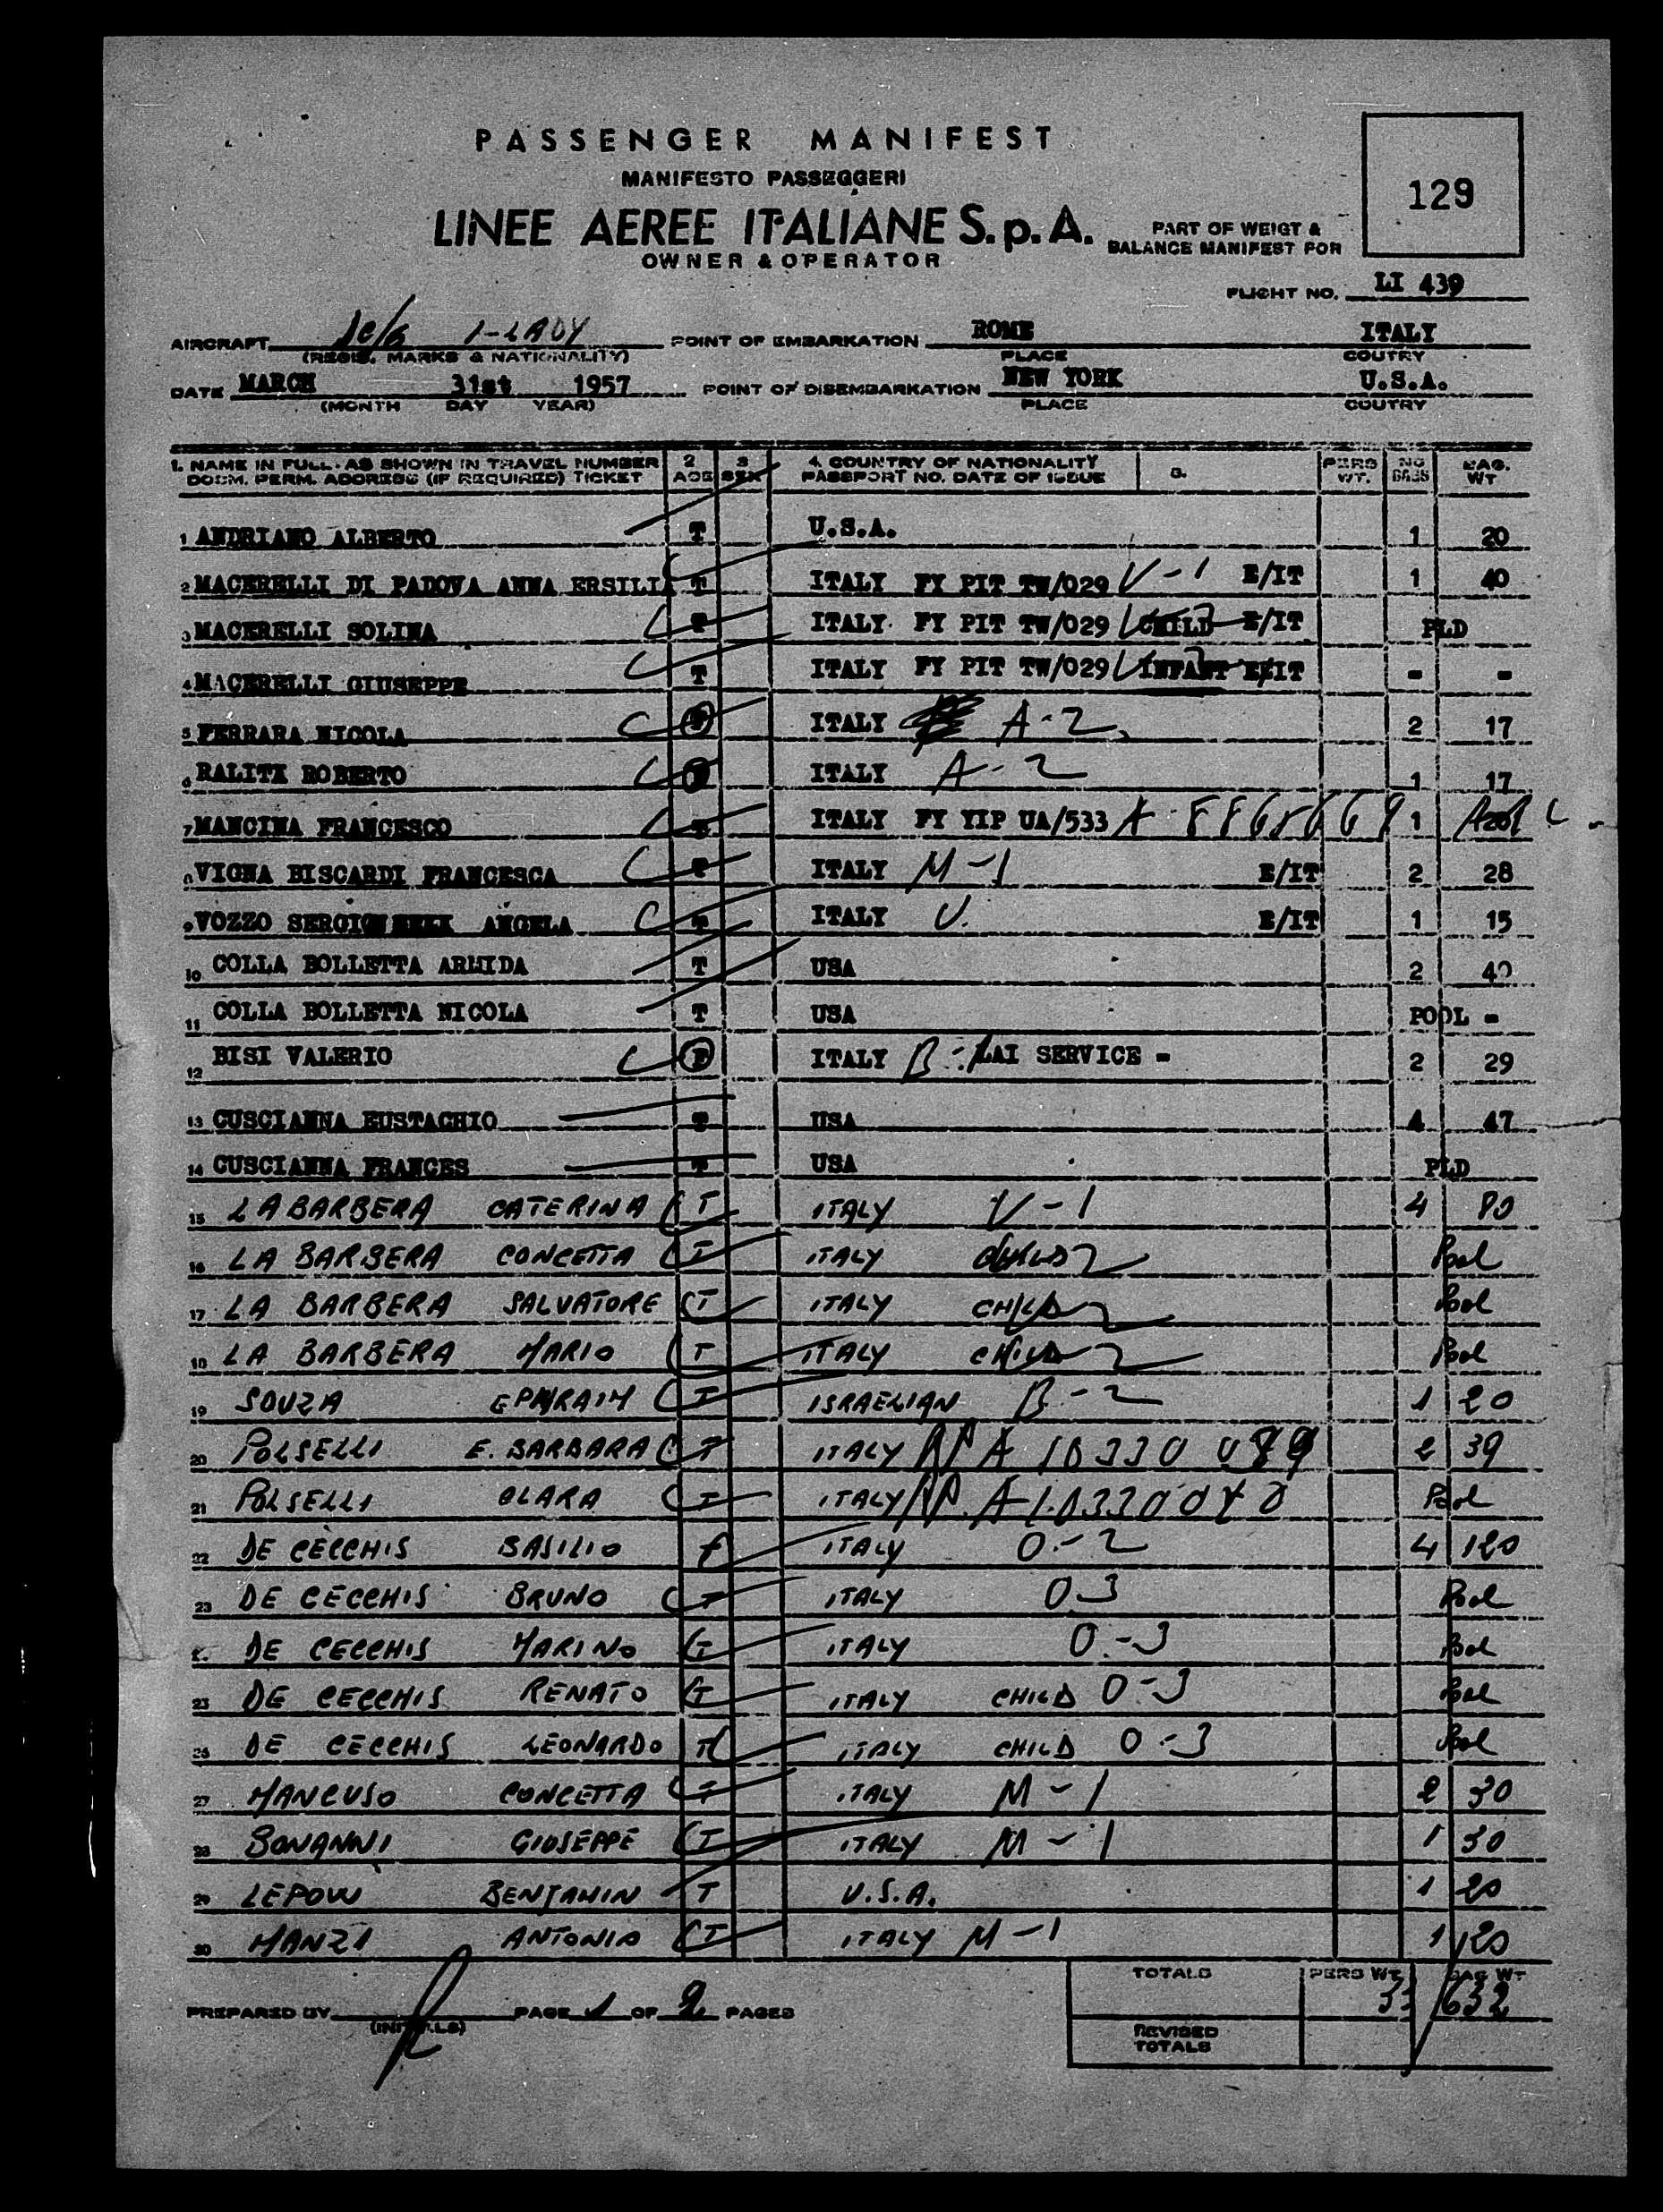 PASSENGER MANIFEST
MANIFESTO PASSEGGERI
129
LINEE AEREE ITALIANE S.p.A.
PART OF WEIGT &
BALANCE MANIFEST FOR
OWNER & OPERATOR
FLIGHT NO. LI 439
AIRCRAFT I-LADY POINT OF EMBARKATION ROME ITALY
(REGIS. MARKS & NATIONALITY) PLACE COUTRY
DATE MARCH 31st 1957 POINT OF DISEMBARKATION NEW YORK U.S.A.
(MONTH DAY YEAR) PLACE COUTRY
1. NAME IN FULL. AS SHOWN IN TRAVEL NUMBER 2 3 4. COUNTRY OF NATIONALITY PERS NO BAG.
DOCM. PERM. ADDRESS (IF REQUIRED) TICKET AGE SEX PASSPORT NO. DATE OF ISSUE WT. BAGS WT
1 ANDRIANO ALBERTO T U.S.A. 1 20
2 MACERELLI DI PADOVA ANNA ERSILIA T ITALY FY PIT TW/029 V-1 E/IT 1 40
3 MACERELLI SOLINA T ITALY FY PIT TW/029 CHILD E/IT PLD
4 MACERELLI GIUSEPPE T ITALY FY PIT TW/029 INFANT E/IT - -
5 FERRARA NICOLA ITALY A-2 2 17
6 RALITI ROBERTO ITALY A-2 1 17
7 MANCINA FRANCESCO ITALY FY YIP UA/533 1
8 VIGNA BISCARDI FRANCESCA T ITALY M-1 E/IT 2 28
9 VOZZO ANGELA T ITALY V. E/IT 1 15
10 COLLA BOLLETTA ARMIDA T USA 2 40
11 COLLA BOLLETTA NICOLA T USA POOL -
12 BISI VALERIO F ITALY LAI SERVICE - 2 29
13 CUSCIANNA EUSTACHIO T USA 4 47
14 CUSCIANNA FRANCES T USA PLD
15 LA BARBERA CATERINA T ITALY V-1 4 80
16 LA BARBERA CONCETTA T ITALY CHILD 2 Pool
17 LA BARBERA SALVATORE T ITALY CHILD 2 Pool
18 LA BARBERA MARIO T ITALY CHILD 2 Pool
19 SOUZA EPHRAIM T ISRAELIAN B-2 1 20
20 POLSELLI E. BARBARA T ITALY 2 39
21 POLSELLI CLARA T ITALY Pool
22 DE CECCHIS BASILIO ITALY O-2 4 120
23 DE CECCHIS BRUNO T ITALY O-3 Pool
DE CECCHIS MARINO T ITALY O-3 Pool
25 DE CECCHIS RENATO T ITALY CHILD O-3 Pool
26 DE CECCHIS LEONARDO T ITALY CHILD O-3 Pool
27 MANCUSO CONCETTA T ITALY M-1 2 30
28 BONANNI GIUSEPPE T ITALY M-1 1 30
29 LEPOW BENJAMIN T U.S.A. 1 20
30 MANZI ANTONIO T ITALY M-1 1 20
TOTALS PERS WT. BAG WT
33 632
PREPARED BY PAGE 1 OF 2 PAGES
(INITIALS)
REVISED
TOTALS